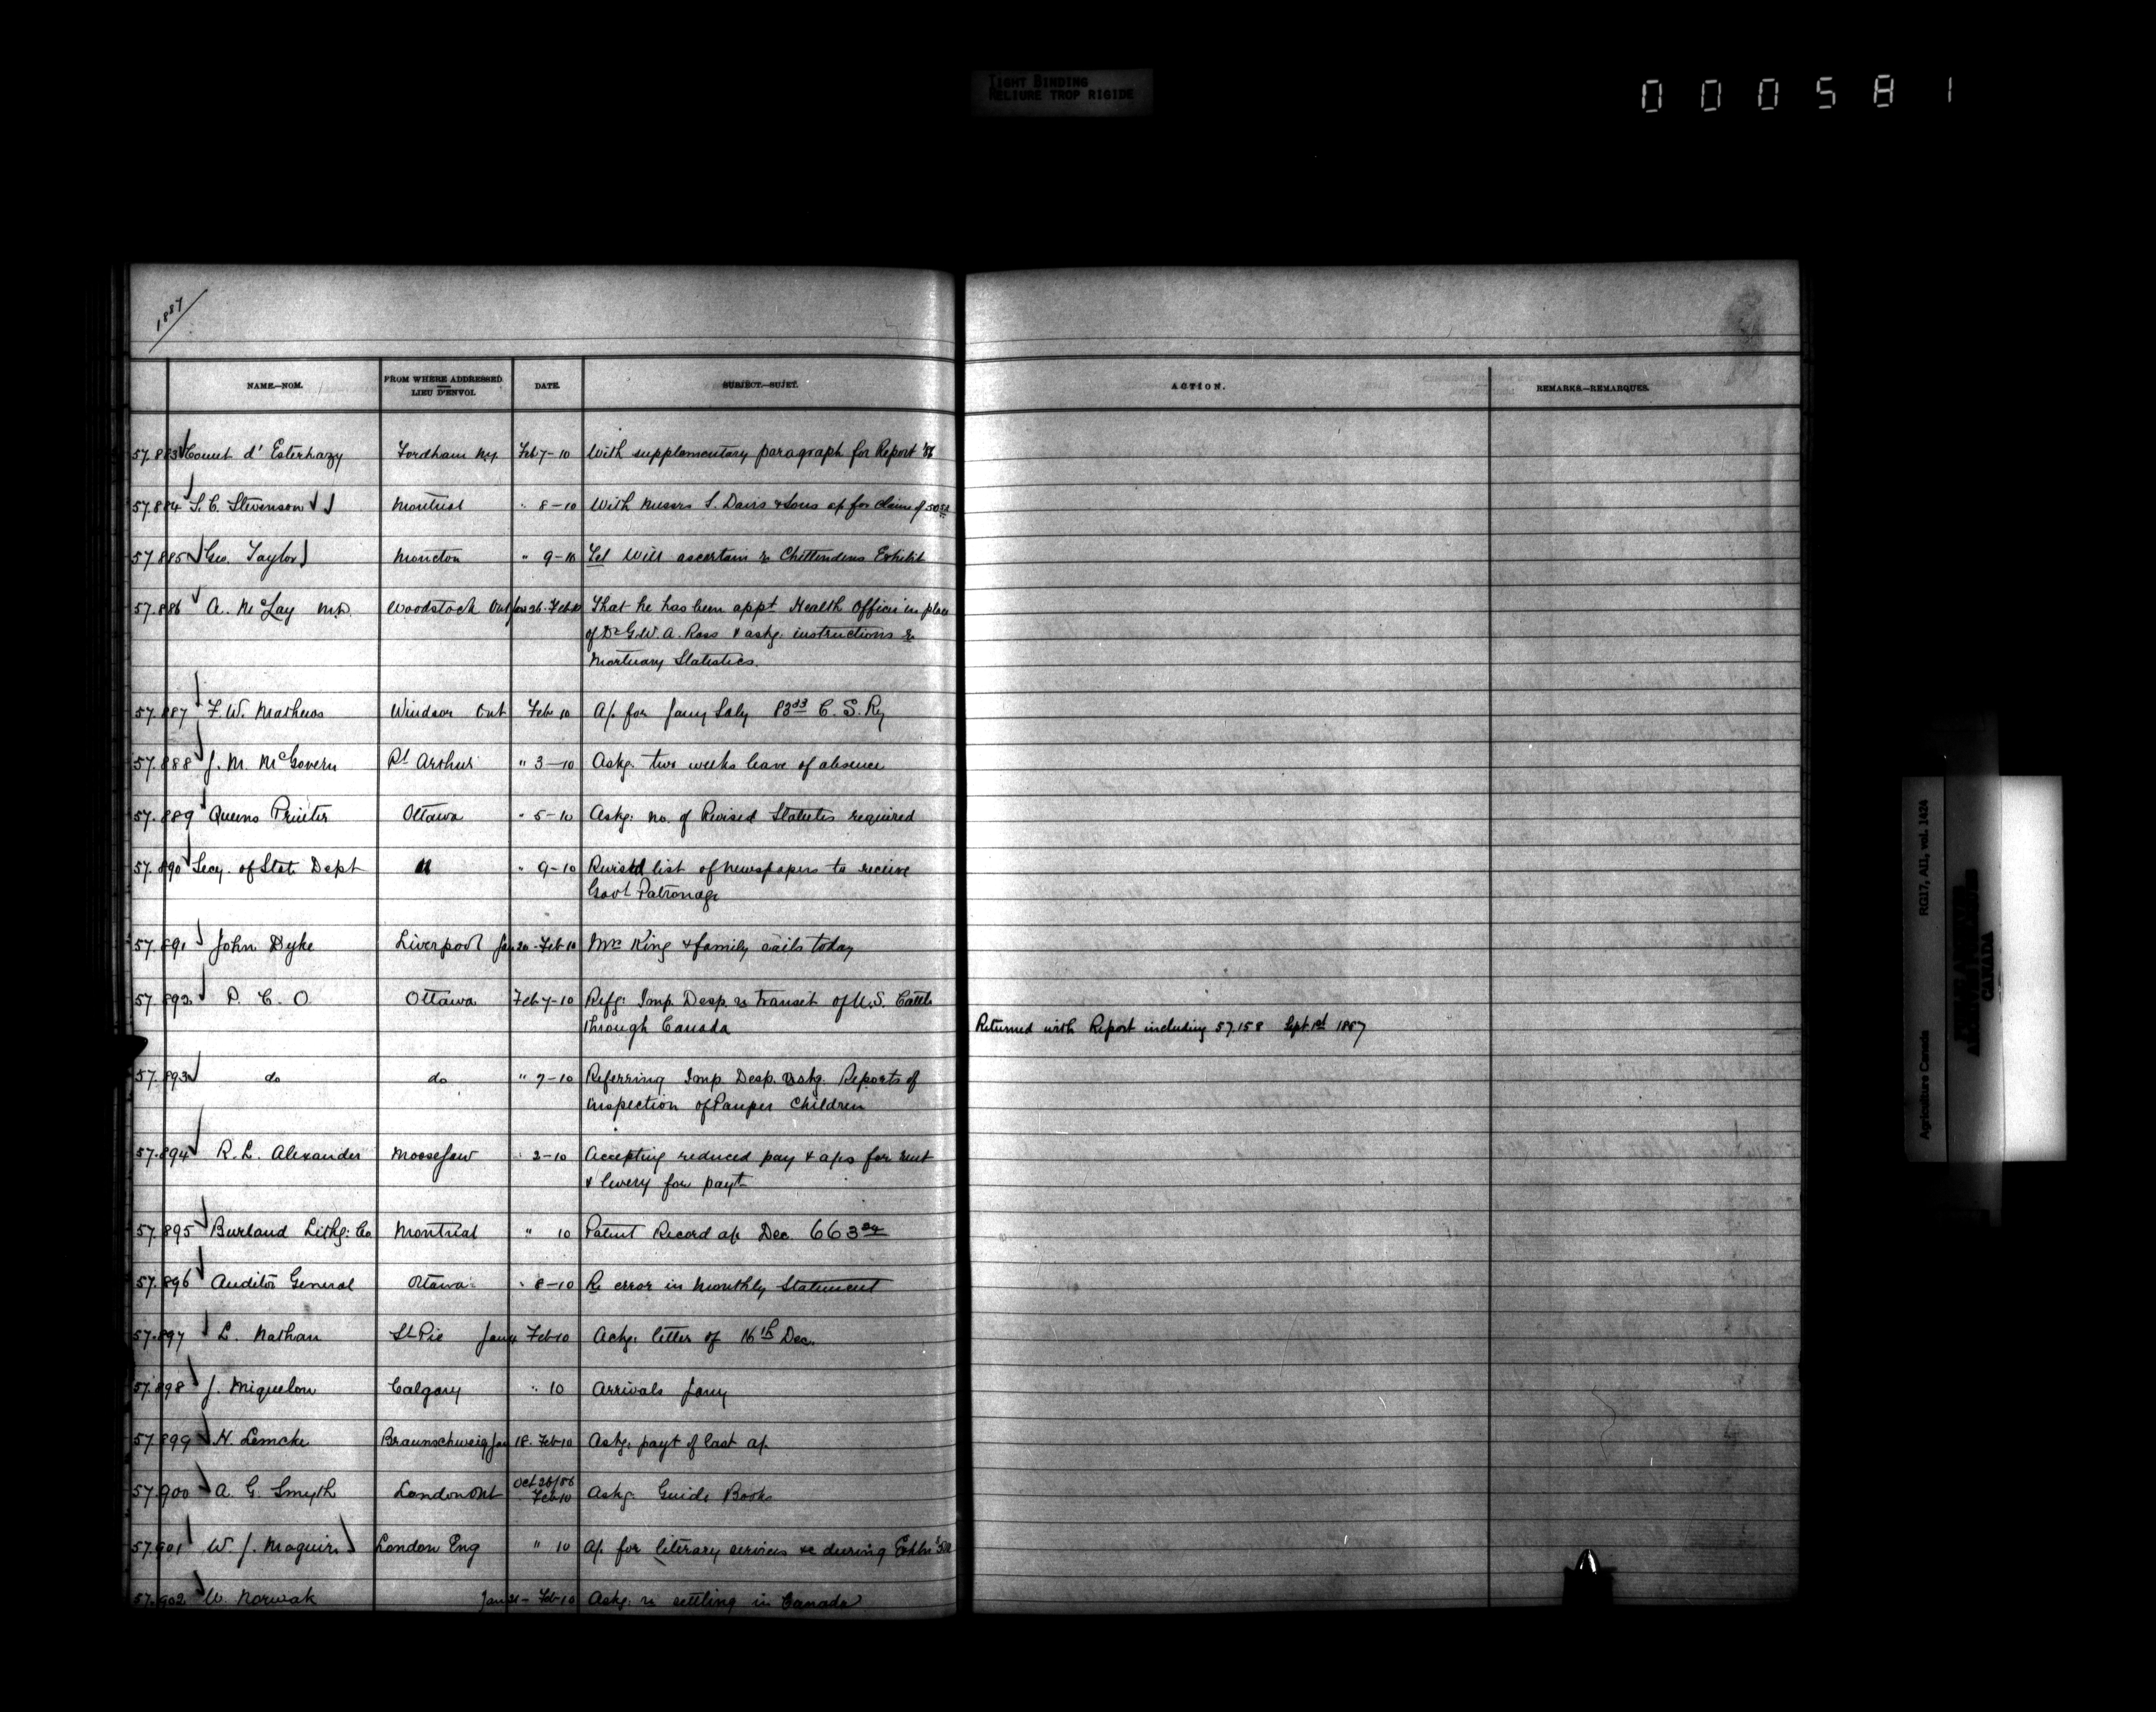 TIGHT BINDING
RELIURE TROP RIGIDE
000581
1887
NAME.—NOM. FROM WHERE ADDRESSED LIEU D'ENVOI. DATE. SUBJECT.—SUJET. ACTION. REMARKS.—REMARQUES.
57.883 Count d'Esterhazy Fordham N.Y. Feb 7-10 With supplementary paragraph for Report '86
57.884 S.C. Stevenson Montreal " 8-10 With Messrs S. Davis & Sons a/c for claim of 50
57.885 Geo. Taylor Moncton " 9-10 Tel Will ascertain re Chittendens Exhibit
57.886 A. McLay M.D. Woodstock Ont Jan 26-Feb 10 That he has been appt Health Officer in place
of Dr G.W.A. Ross & askg. instructions re
Mortuary Statistics.
57.887 F.W. Mathews Windsor Ont Feb 10 A/c for Jany Saly 83 33 C.S. Ry
57.888 J.M. McGovern Pt Arthur " 3-10 Askg. two weeks leave of absence
57.889 Queens Printer Ottawa " 5-10 Askg. no. of Revised Statutes required
57.890 Secy. of State Dept " " 9-10 Revised list of newspapers to receive
Govt Patronage
57.891 John Dyke Liverpool Jan 20-Feb 10 Mrs King & family sails today
57.892 P.C.O Ottawa Feb 7-10 Refg. Imp. Desp. re transit of U.S. Cattle
through Canada Returned with Report including 57.158 Sept 1st 1887
57.893 do do " 7-10 Referring Imp. Desp. askg. Reports of
inspection of Pauper Children
57.894 R.L. Alexander MooseJaw " 3-10 Accepting reduced pay & a/cs for rent
& livery for payt
57.895 Burland Lithg. Co Montreal " 10 Patent Record a/c Dec. 663
57.896 Auditor General Ottawa " 8-10 Re error in Monthly Statement
57.897 L. Nathan St Pie Jany Feb 10 Ackg. letter of 16th Dec.
57.898 J. Miquelon Calgary " 10 Arrivals Jany
57.899 H. Lemcke Braunschweig Jan 18. Feb 10 Askg. payt of last a/c
57.900 A.G. Smyth London Ont Oct 26/86 Feb 10 Askg. Guide Books
57.901 W.J. Maguire London Eng " 10 A/c for literary services &c during Exhn
57.902 W. Norwak Jan 21- Feb 10 Askg. re settling in Canada
Agriculture Canada RG17, AI1, vol. 1424
CANADA